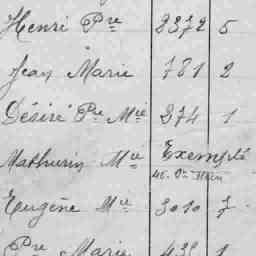 Henri Pre 2372 5
Jean Marie 781 2
Désiré Pre Mie 274 1
Mathurin Mie Exempté
Eugène Mie 3010 7
Pre Marie 439 1